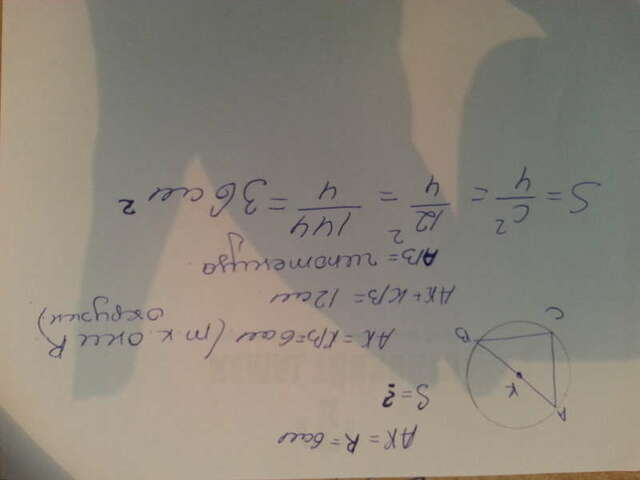 AK = R = 6см
S = ?
AK = KB = 6см (т.к. они R окружн.)
AK + KB = 12см
AB = гипотенуза
S = c²/4 = 12²/4 = 144/4 = 36см²
A
K
B
C